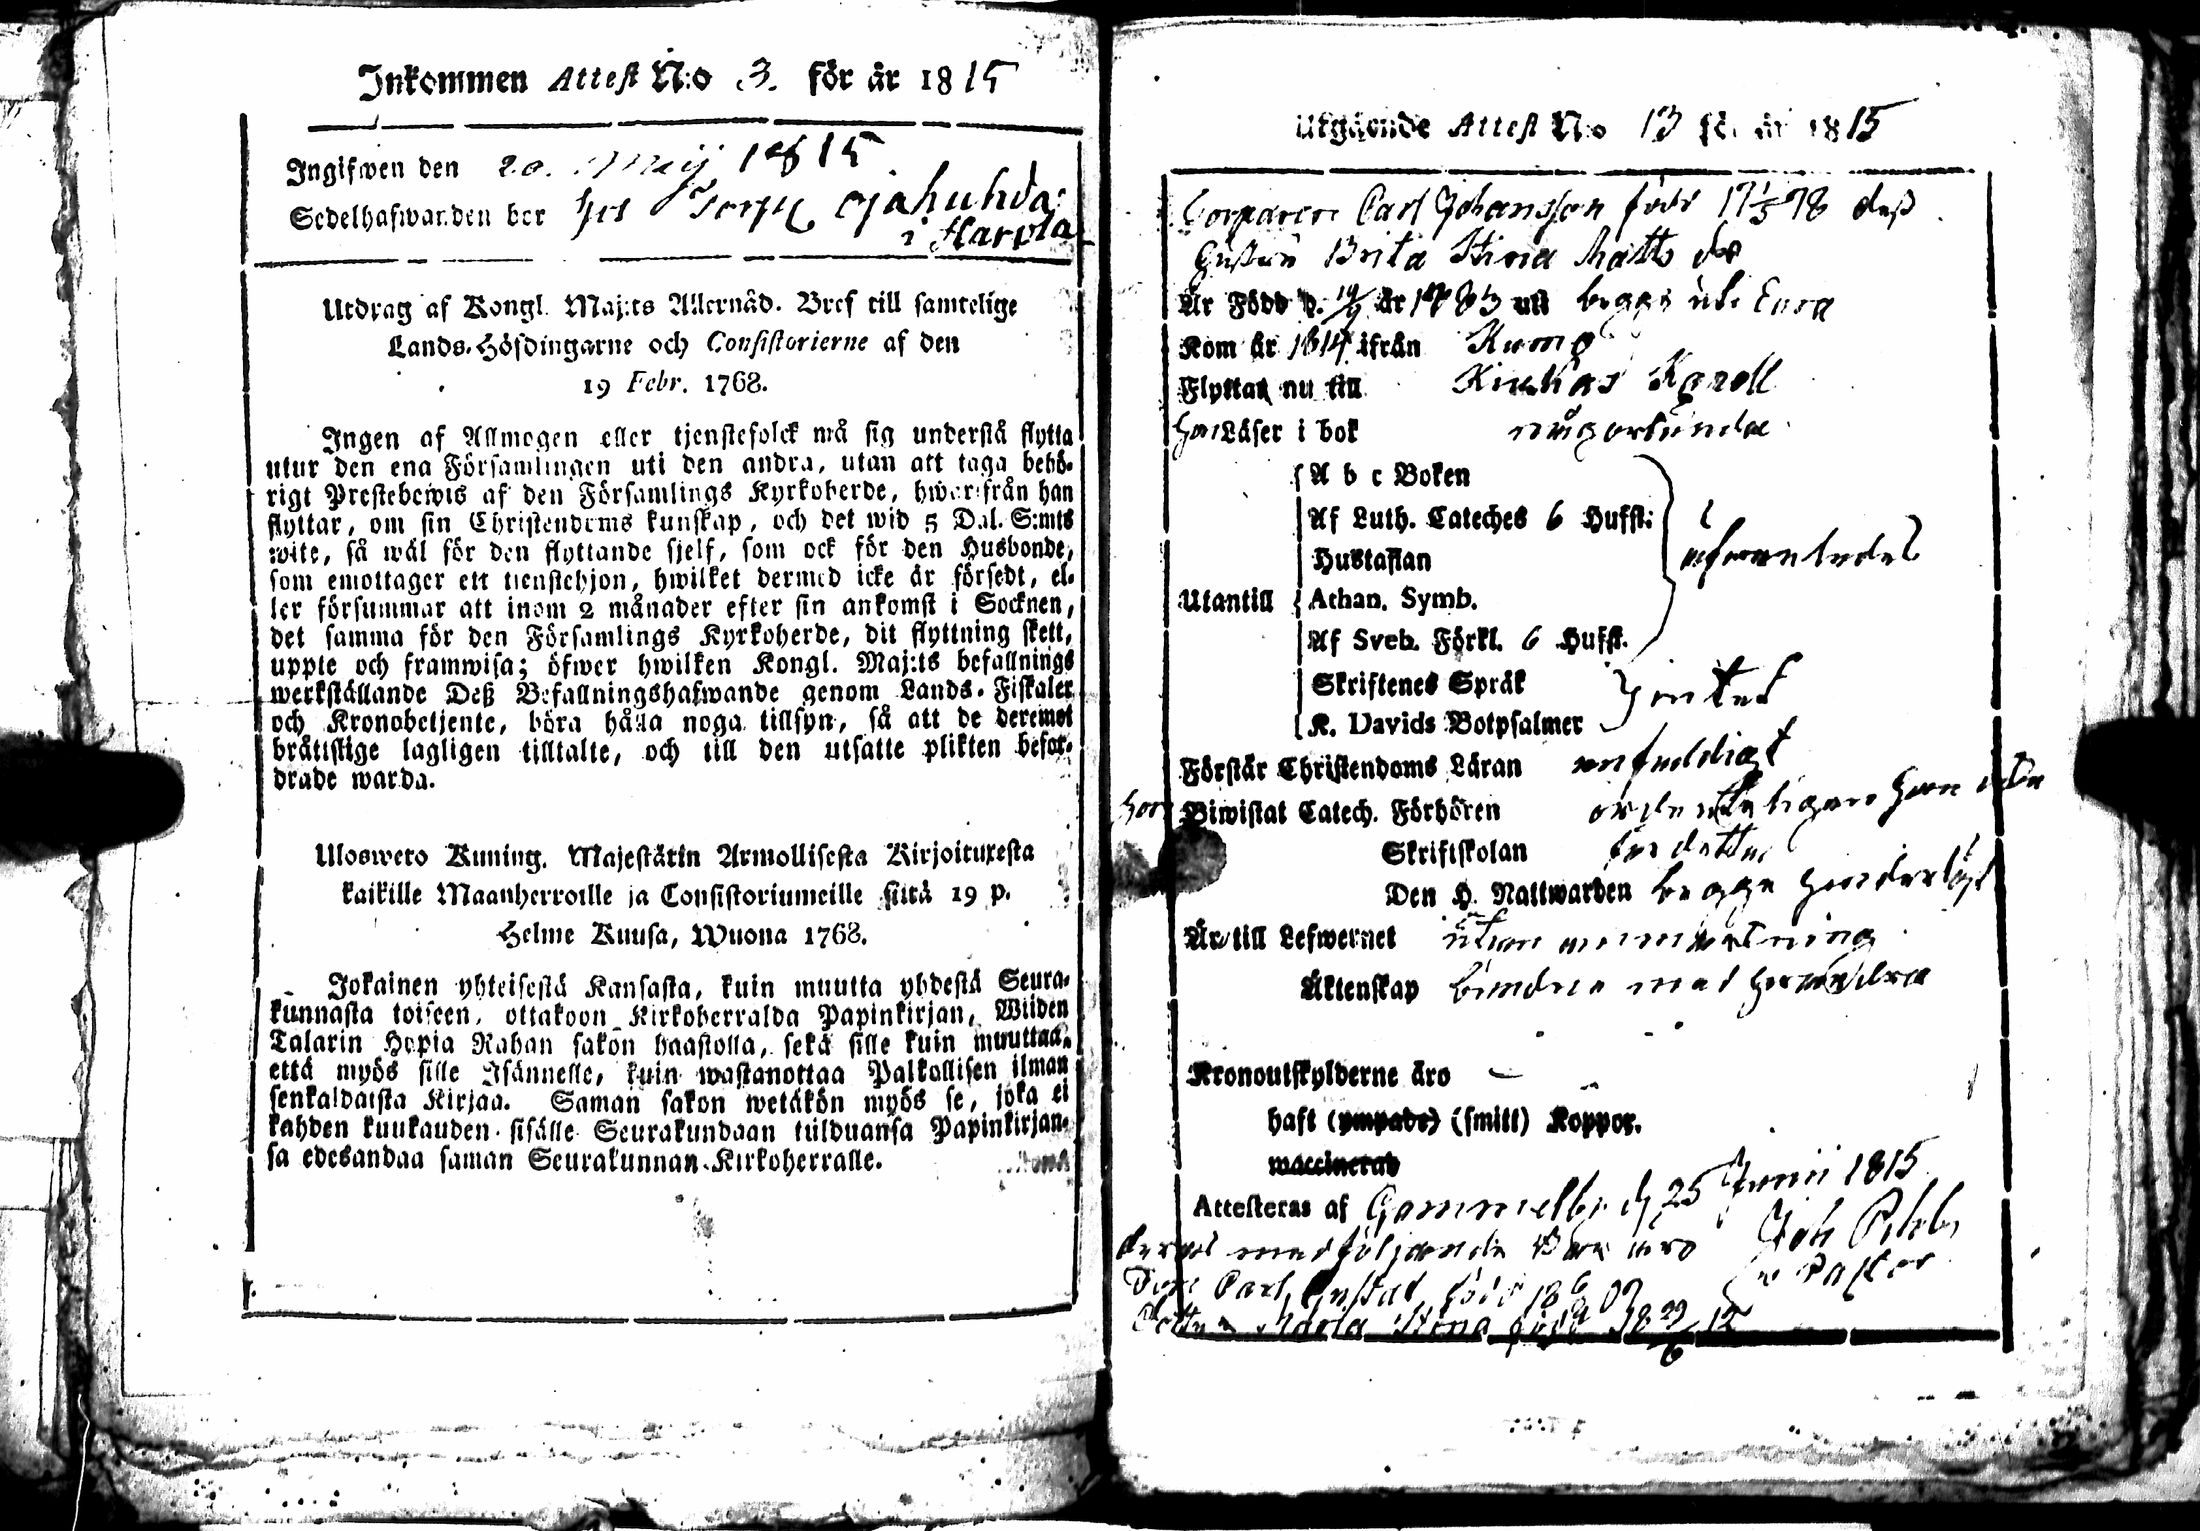 Inkommen Attest N:o 3. för år 1815
Ingifwen den 20. Maij 1815
Sedelhafwanden bor hos
i Harola
Utdrag af Kongl. Maj:ts Allernåd. Bref till samtelige
Lands-Höfdingarne och Consistorierne af den
19 Febr. 1768.
Ingen af Allmogen eller tjenstefolck må sig understå flytta
utur den ena Församlingen uti den andra, utan att taga behö-
rigt Prestebewis af den Församlings Kyrkoherde, hwarifrån han
flyttar, om sin Christendoms kunskap, och det wid 5 Dal. S:mts
wite, så wäl för den flyttande sjelf, som ock för den Husbonde,
som emottager ett tienstehjon, hwilket dermed icke är försedt, el-
ler försummar att inom 2 månader efter sin ankomst i Socknen,
det samma för den Församlings Kyrkoherde, dit flyttning skett,
uppte och framwisa; öfwer hwilken Kongl. Maj:ts befallnings
werkställande Deß Befallningshafwande genom Lands-Fiskaler
och Kronobetjente, böra hålla noga tillsyn, så att de deremot
bråtislige lagligen tilltalte, och till den utsatte plikten befor-
drade warda.
Uloswero Kuning. Majestätin Armollisesta Kirjoituxesta
kaikille Maanherroille ja Consistoriumeille siitä 19 p.
Helme Kuusa, Wuona 1768.
Jokainen yhteisestä Kansasta, kuin muutta yhdestä Seura-
kunnasta toiseen, ottakoon Kirkoherralda Papinkirjan, Wiiden
Talarin Hopia Rahan sakon haastolla, sekä sille kuin muuttaa,
että myös sille Isännelle, kuin wastanottaa Palkollisen ilman
senkaldaista Kirjaa. Saman sakon wetäkön myös se, joka ei
kahden kuukauden sisälle Seurakundaan tulduansa Papinkirjan-
sa edesandaa saman Seurakunnan Kirkoherralle.
Utgående Attest N:o 13 för år 1815
Carl Johansson född 17 1/5 78 deß
Hustru Brita Stina Matts dr
Är Född d. 19/9 år 1783 uti begge uti Eura
Kom år 1814 ifrån Kumo
Flyttar nu till Kapell
Läser i bok någorlunda
Utantill
A b c Boken
Af Luth. Cateches 6 Hufst:
Hustaflan
Athan. Symb.
Af Sveb. Förkl. 6 Hufst.
Skriftenes Språk
K. Davids Botpsalmer
intet
Förstår Christendoms Läran enfaldigt
Biwistat Catech. Förhören
Skriftskolan
Den H. Nattwarden begge
Är till Lefwernet utan anmärkning
Äktenskap bundne med hwarandra
Kronoutskylderne äro
haft (ympade) (smitt) Koppor.
waccinerad
Attesteras af Gammelby d 25 Junii 1815
medföljande Barn äro
Pastor
Carl Gustaf född
Maria Stina född 18 29/6 12